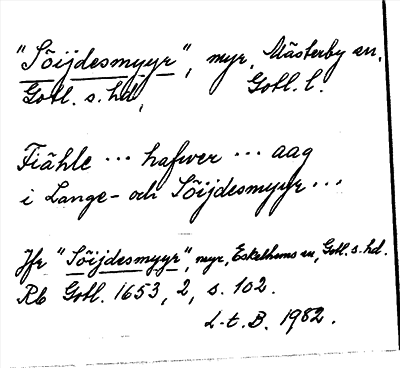 "Sõijdesmyyr", myr, Mästerby sn,
Gotl. s. hd, Gotl. l.
Fiähle ... hafwer ... aag
i Lange- och Sõijdesmyyr ...
Jfr "Sõijdesmyyr", myr, Eskelhems sn, Gotl. s. hd.
Rb Gotl. 1653, 2, s. 102.
L.t.B. 1982.